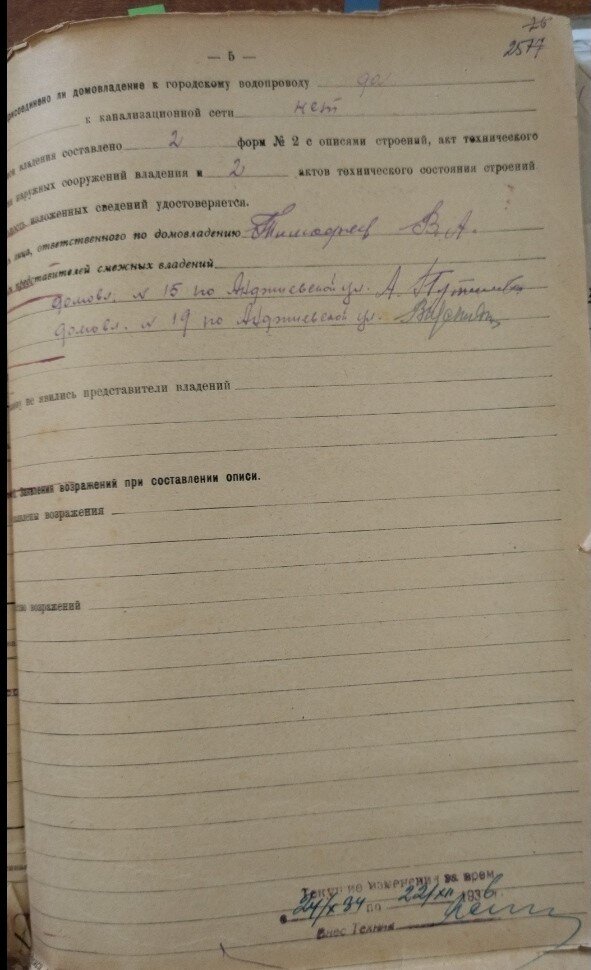 75
2577
— 5 —
рисоединено ли домовладение к городскому водопроводу да
к канализационной сети нет
владения составлено 2 форм № 2 с описями строений, акт технического
наружных сооружений владения и 2 актов технического состояния строений
изложенных сведений удостоверяется.
лица, ответственного по домовладению Тимофеев В. А.
представителей смежных владений
домовл. № 15 по ул. А.
домовл. № 19 по ул.
не явились представители владений
заявления возражений при составлении описи.
возражения
возражений
Текущие изменения за врем
с 24/X 34 по 22/XII 1936 г.
внес Техник